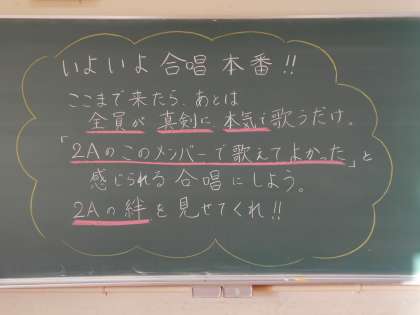 いよいよ合唱本番!!
ここまで来たら、あとは
全員が真剣に本気で歌うだけ。
「2Aのこのメンバーで歌えてよかった」と
感じられる合唱にしよう。
2Aの絆を見せてくれ!!